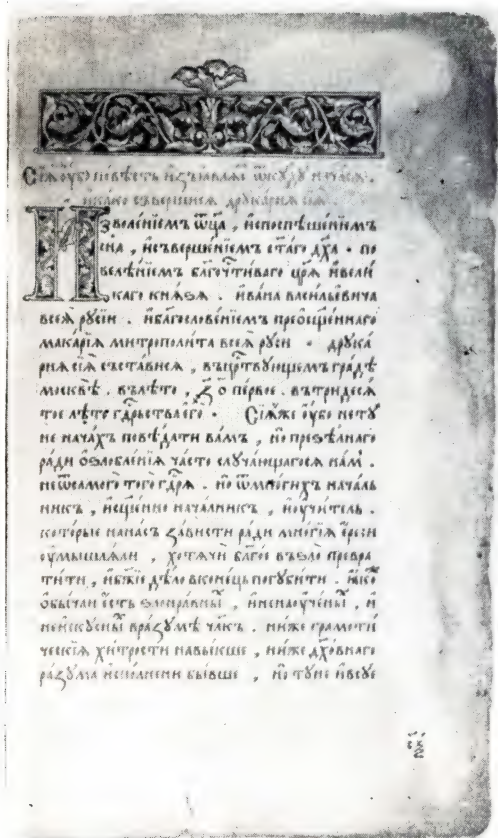 Сїѧ оу҆бо по́вѣсть и҆з̾ѧвлѧ́етъ ѿкꙋ́дꙋ нача́сѧ .
и҆ ка́ко съверши́сѧ дрꙋка́рнѧ сїѧ̀ .
И҆зволе́нїемъ ѿц҃а̀ , и҆поспѣше́нїемъ
сн҃а , и҆съверше́нїемъ ст҃а́го дх҃а • по
велѣ́нїемъ бл҃гочти́ваго цр҃ѧ̀ и҆вели́
каго кнѧ́ѕѧ . и҆ва́на васи́льевича
всеѧ̀ рꙋсі́и . и҆бл҃гослове́нїемъ преѡсщ҃е́ннаго
мака́рїѧ митрополи́та всеѧ̀ рꙋсі́и • дрꙋка́
рнѧ сїѧ̀ съста́висѧ , въцр҃ствꙋющемъ гра́дѣ
москвѣ̀ . влѣ́то , ҂зо҃ пе́рвое . втридесѧ́
тое лѣ́то гдр҃ьства є҆го̀ • Сїѧ́же оу҆́бо нетꙋ́
не нача́хъ повѣ́дати ва́мъ , но҆ презѣ́лнаго
ра́ди ѻ҆ѕлобле́нїѧ ча́сто слꙋча́ющагосѧ на́мъ .
неѿсамого̀ того̀ гдр҃ѧ . но҆ ѿмно́гихъ нача́ль
никъ , и҆сщ҃е́нно нача́лникъ , и҆оу҆чи́тель .
кото́рые нана́съ за́висти ра́ди мно́гїѧ є҆́реси
оу҆мышлѧ́ли , хотѧ́чи бл҃го́е въѕло̀ превра
ти́ти , и҆бж҃їе дѣ́ло вконе́цъ погꙋби́ти . ꙗ҆́коже
ѻ҆бы́чаи є҆́сть ѕлонра́вныⷯ , и҆ненаоу҆че́ныⷯ , и҆
неискꙋ́сныⷯ вра́зꙋмѣ чл҃къ . нижѐ грамоти́
ческїѧ хи́трости навы́кше , нижѐ дх҃о́внаго
ра́зꙋма и҆спо́лнени бы́вше , но҆ тꙋ́не и҆всꙋ́е